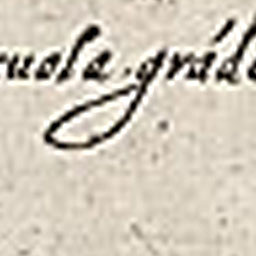 cuola gráde